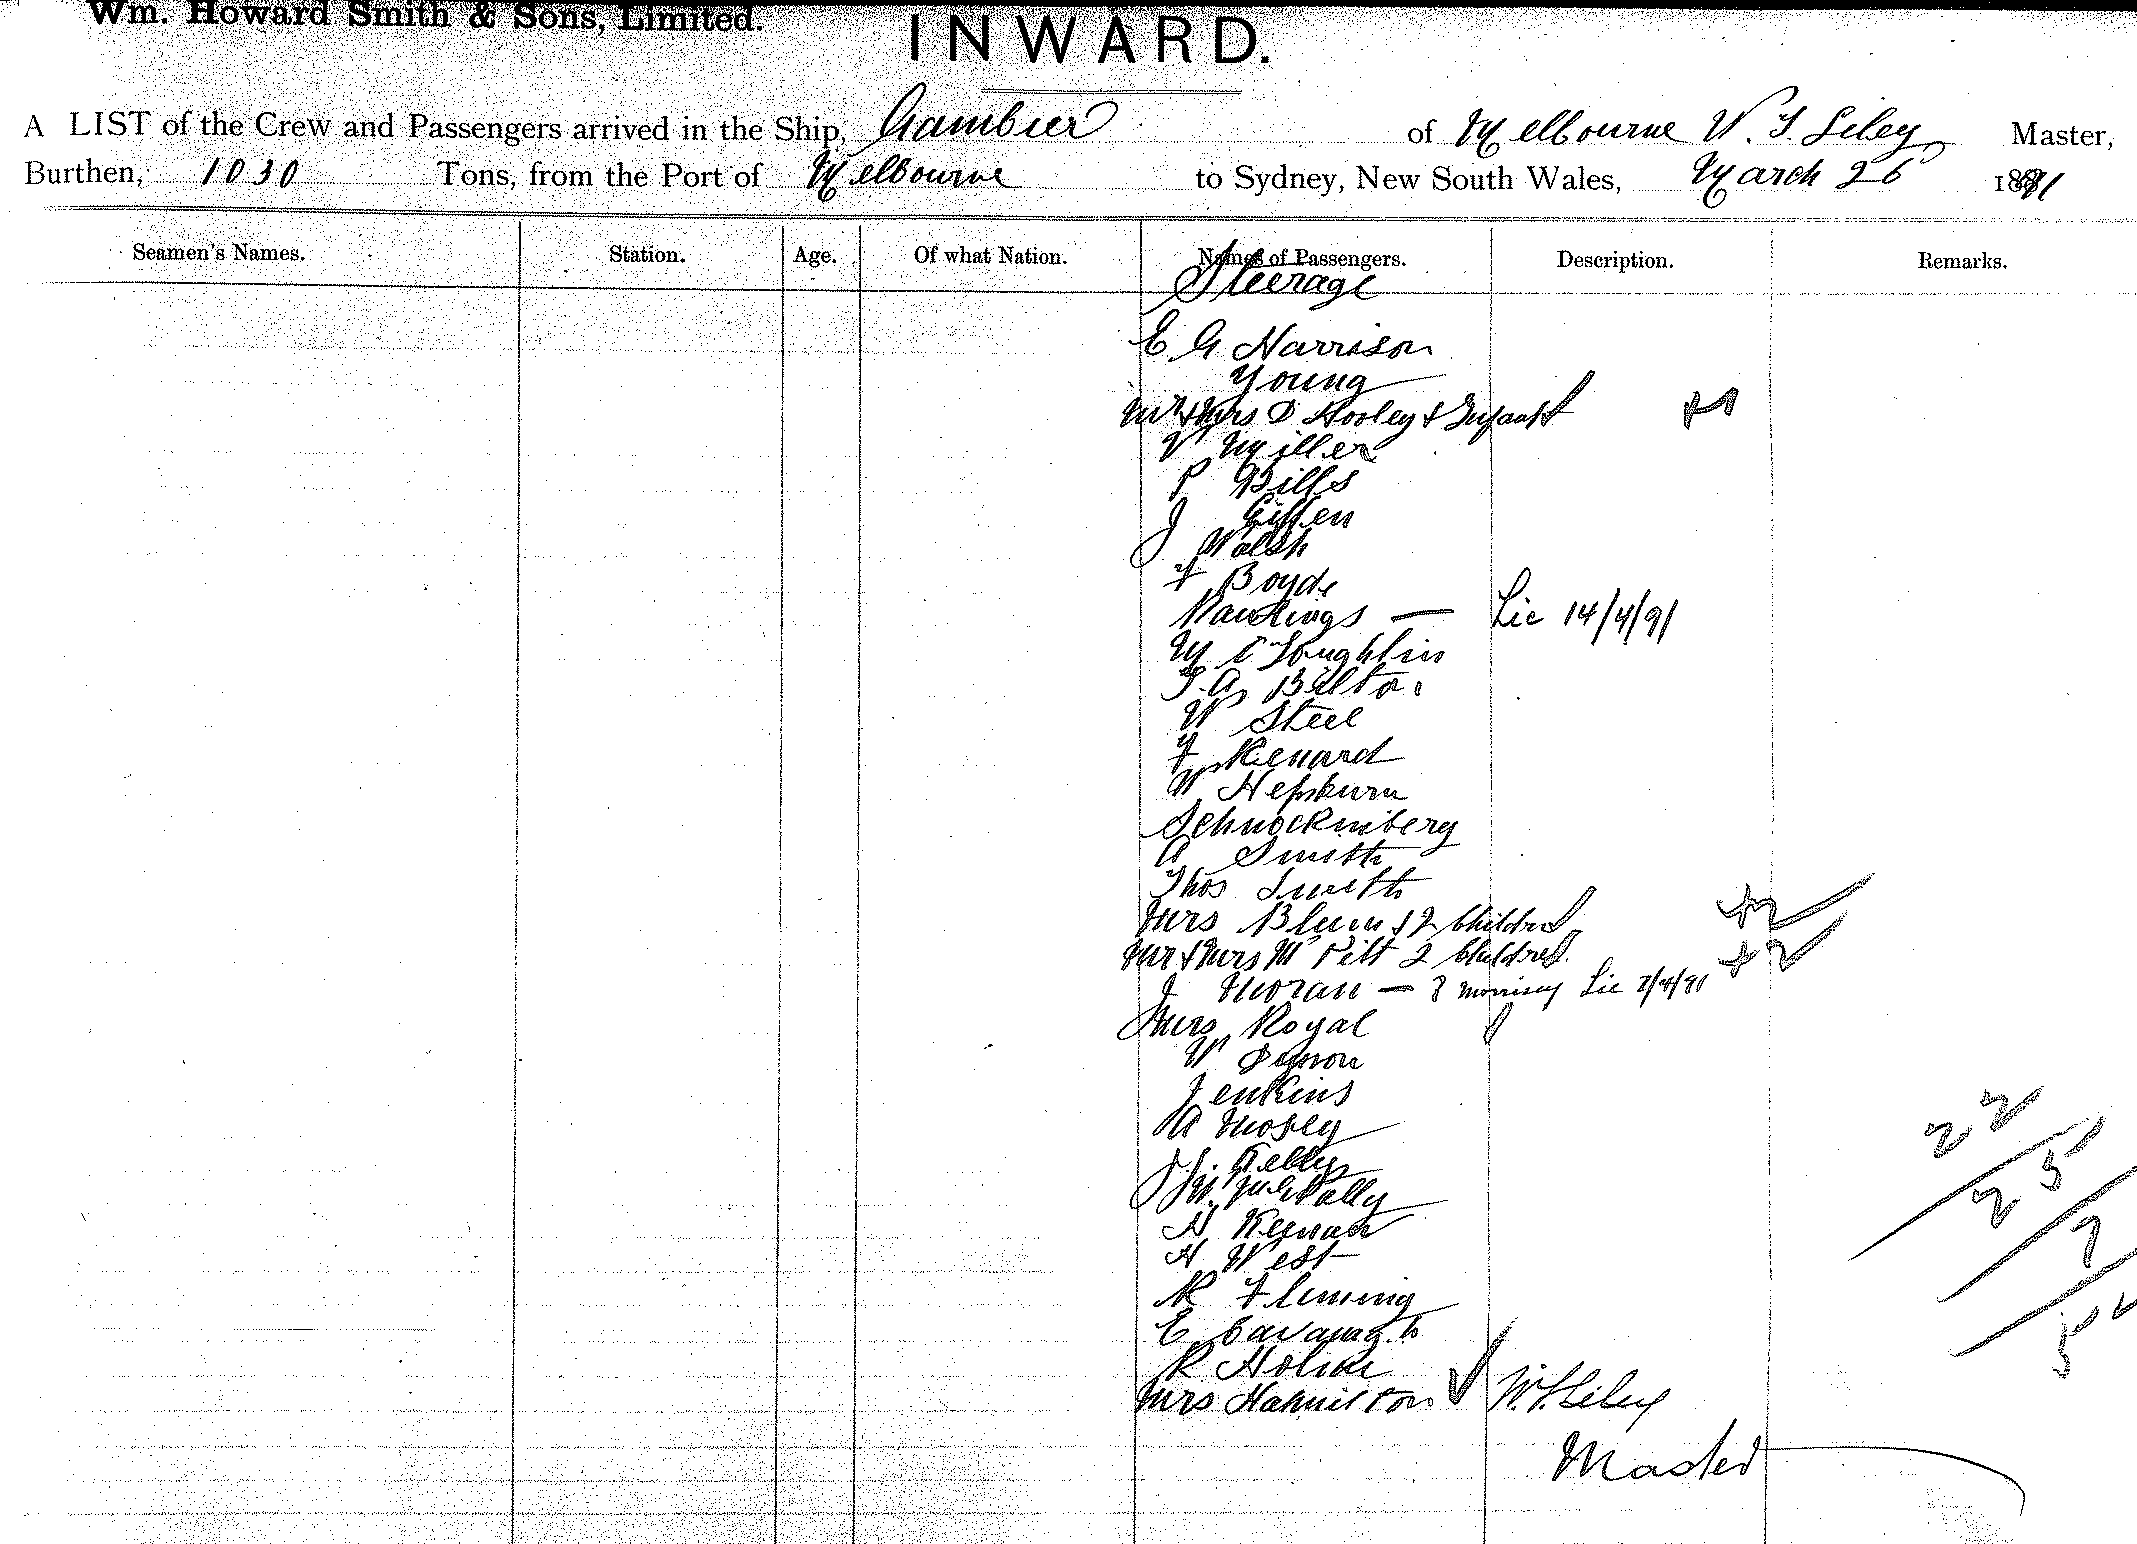 Wm. Howard Smith & Sons, Limited.
INWARD.
A LIST of the Crew and Passengers arrived in the Ship, Gambier of Melbourne W. S. Liley Master,
Burthen, 1030 Tons, from the Port of Melbourne to Sydney, New South Wales, March 26 1891
Seamen's Names. Station. Age. Of what Nation. Names of Passengers. Description. Remarks.
Steerage
E G Harrison
Young
Mr & Mrs D Hooley & Infant
V Miller
P Bills
J Giffen
J Walsh
F Boyde
Rawlings — Lic 14/4/91
M O'Loughlin
W Steel
F Renard
W Hepburn
A Smith
Thos Smith
Mrs Blum & 2 Children
Mr & Mrs 2 Children
J Moran — ? Morrisey Lic 7/4/91
Mrs Royal
W Dymon
Jenkins
A Mosley
J. Kelly
W. McNally
H Keenan
H West
R Fleming
E Cavanagh
R Holme
Mrs Hamilton W. S. Liley
Master
22
25
7